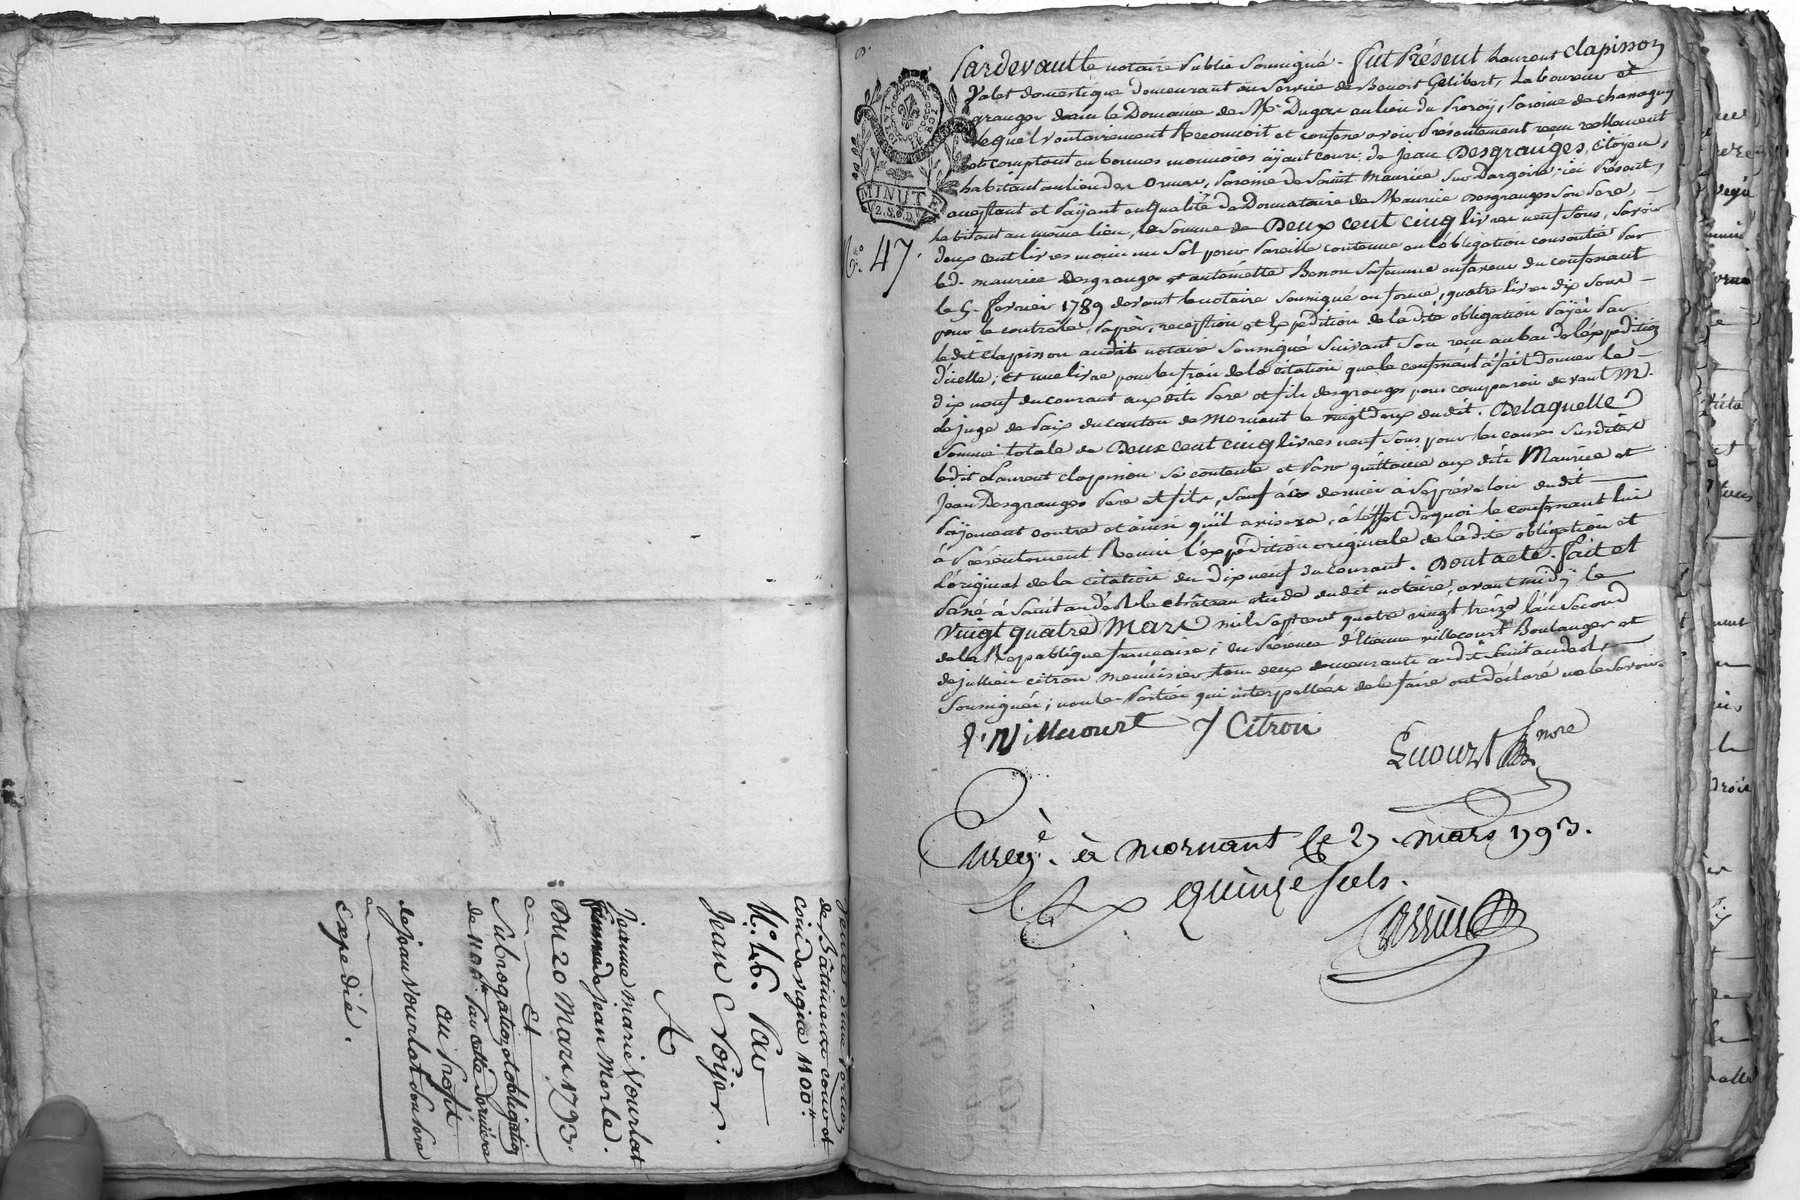 vente d'une portion
de Bâtiments cour et
coin de vigne 1100ᵗᵗ
N.° 46. Par
Jean Voijer.
A
Jeanne Marie Vourlat
femme de Jean Morle.
Du 20 Mars 1793.
Et
Subrogation d'obligation
de 1100ᵗᵗ par cette dernière
au Profit
de Jean Vourlat son pere
Expédié.
Pardevant le notaire Public soussigné. fut Présent Laurent Clapisson
Valet domestique demeurant au service de Benoit Gelibert, Laboureur et
granger dans le Domaine de Mr. Dugas au lieu du Prozoÿ, Paroisse de Chassagny
lequel volontairement Reconnoit et confesse avoir Présentement reçu réellement
et comptant en bonnes monnoies aÿant cours, de Jean Desgranges, Citoÿen,
habitant au lieu des Ormes, Paroisse de Saint Maurice sur Dargoire, ici Présent,
acceptant et Paÿant en Qualité de Donnataire de Maurice Desgranges son Pere
habitant au même lieu, la Somme de Deux cent cinq livres neuf Sous, Savoir
deux cent livres moins un Sol pour Pareille contenue en l'obligation consentie Par
led. maurice Desgranges et antoinette Benon sa femme en faveur du confessant
le 5. février 1789 devant le notaire soussigné en forme, quatre livres dix Sous
pour le contrôle, Papier, reception et Expédition de la dite obligation Paÿés Par
ledit Clapisson audit notaire soussigné suivant son reçu au bas de l'expédition
d'icelle; Et une livre pour les frais de la citation que le confessant a fait donner le
dix neuf du courant aux dits Pere et fils desgranges pour comparoir devant M.
le juge de Paix du canton de Mornant le vingt deux dudit. De laquelle
Somme totale de Deux cent cinq livres neuf Sous pour les causes susdites
ledit Laurent Clapisson se contente et Passe quittance aux dits Maurice et
Jean Desgranges Pere et fils, Sauf à ce dernier à se prévaloir dudit
Paÿement contre et ainsi qu'il avisera, à l'effet de quoi le confessant lui
à Présentement Remis l'expédition originale de la dite obligation et
l'original de la citation du dix neuf du courant. Dont acte. fait et
Passé à Saint andéol le château étude dudit notaire, avant midÿ le
vingt quatre Mars mil Sept cent quatre vingt treize l'an Second
de la Republique française; En Présence d'Etienne villecourt Boulanger et
de Jullien citron menuisier, tous deux demeurants audit Saint andéol,
Soussignés; non les Parties qui interpellées de le faire ont déclaré ne le savoir.
MINUTE
2. S. 8. D.
LA LOI LE ROI
N.° 47.
E. Villecourt J Citron
Enreg.é à Mornant le 27. mars 1793.
quinze sols.